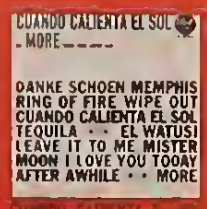 CUANDO CALIENTA EL SOL
MORE
DANKE SCHOEN MEMPHIS
RING OF FIRE WIPE OUT
CUANDO CALIENTA EL SOL
TEQUILA • • EL WATUSI
LEAVE IT TO ME MISTER
MOON I LOVE YOU TODAY
AFTER AWHILE • • MORE